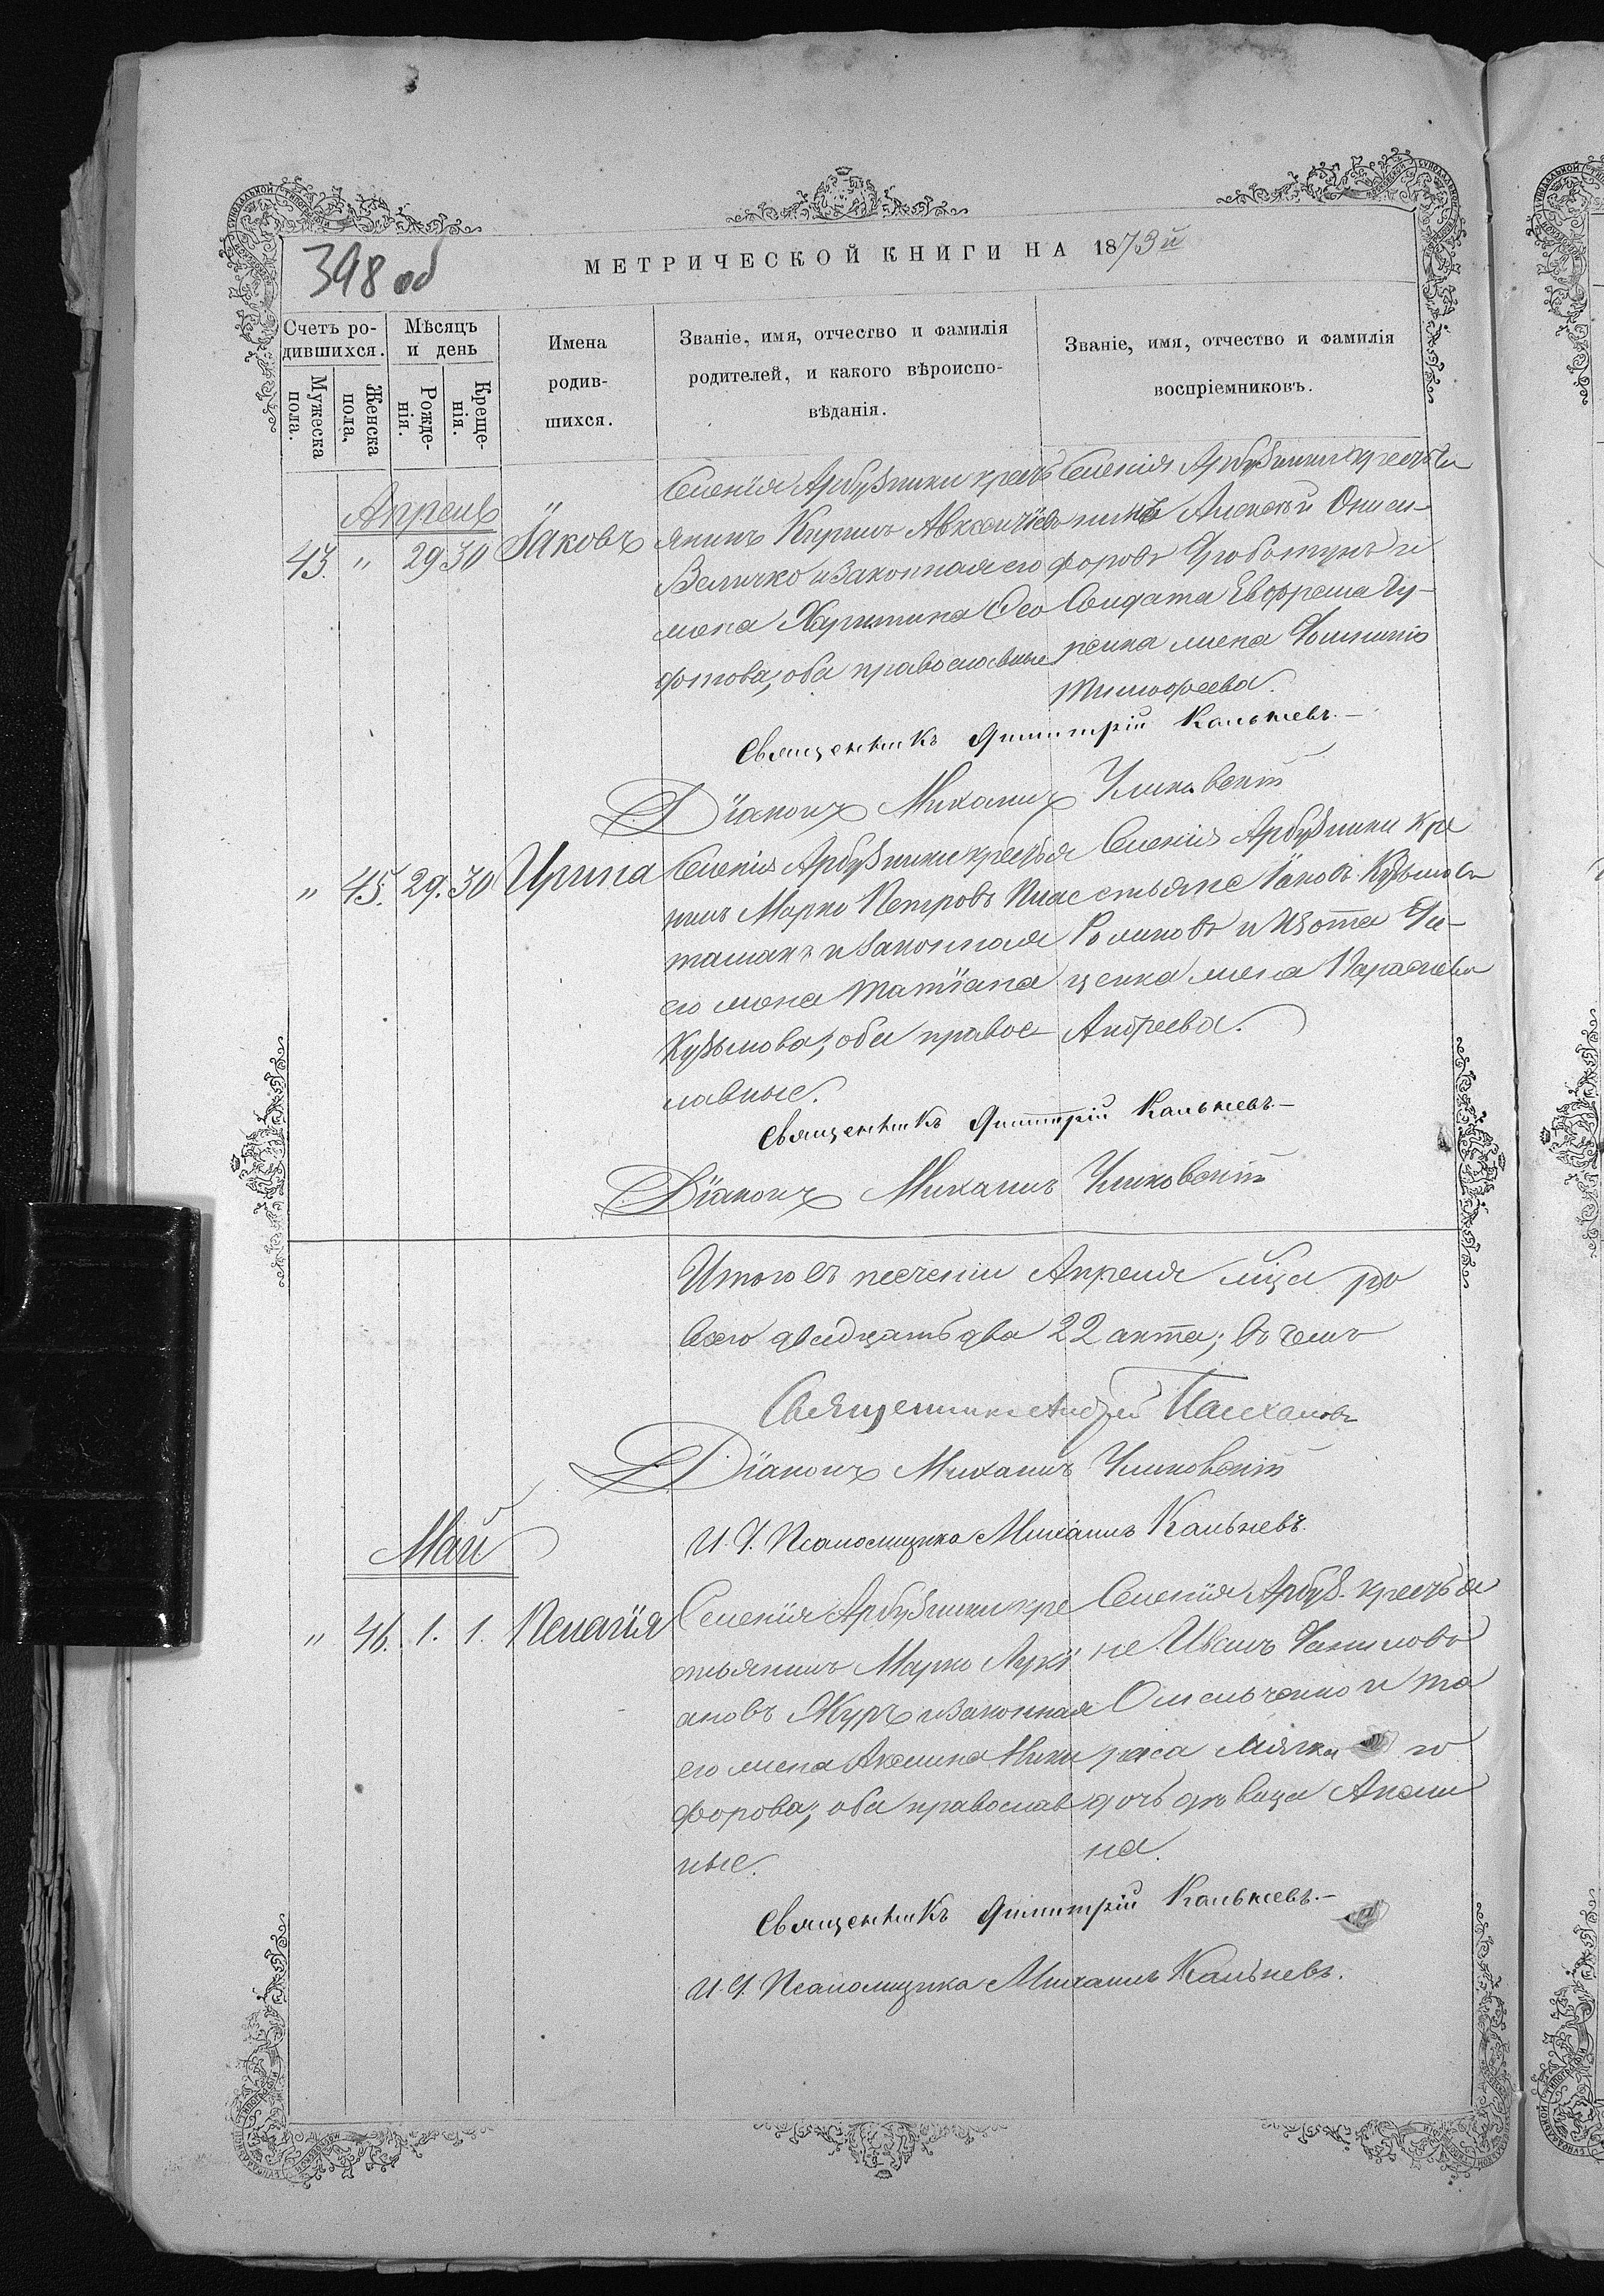 398 об
МЕТРИЧЕСКОЙ КНИГИ НА 1873й
Счетъ ро-
дившихся.
Мужеска
пола.
Женска
пола.
Мѣсяцъ
и день
Рожде-
нія.
Креще-
нія.
Имена
родив-
шихся.
Званіе, имя, отчество и фамилія
родителей, и какого вѣроиспо-
вѣданія.
Званіе, имя, отчество и фамилія
воспріемниковъ.
Апрель
43. " 29 30 Іаковъ
Селенія Арбузинки кресть
янинъ Кирилъ Авксентіевъ
Величко и законная его
жена Харитина Ѳео
фотова; оба православные
Селенія Арбузинки крестья
нинъ Алексѣй Ониси-
форовъ Чоботунъ и
Солдата Евфрема Гу-
женка жена Домникія
Тимофеева.
Священникъ Димитрій Кальневъ.-
Діаконъ Михаилъ Улиновскій
" 45. 29. 30 Ирина
Селенія Арбузинки крестья
нинъ Марко Петровъ Плас
таманъ и законная
его жена Татіана
Кузьмова; оба правос-
лавные.
Селенія Арбузинки кре
стьяне Іаковъ Кузьмовъ
Романовъ и Изота
ценка жена Параскева
Андреева.
Священникъ Димитрій Кальневъ.-
Діаконъ Михаилъ Улиновскій
Итого въ теченіи Апреля мѣца
всего двадцать два 22 акта; въ чемъ
Священникъ Андрей Палехановъ
Діаконъ Михаилъ Улиновскій
И. Д. Псаломщика Михаилъ Кальневъ.
Май
" 46. 1. 1. Пелагія
Селенія Арбузинки кре
стьянинъ Марко Лукі
ановъ Журъ и законная
его жена Акилина Ники
форова; оба православ
ные.
Селенія Арбуз. крестья
не Иванъ Даниловъ
Омельченко и та
раса
дочь дѣвица Акили
на.
Священникъ Димитрій Кальневъ.-
И. Д. Псаломщика Михаилъ Кальневъ.